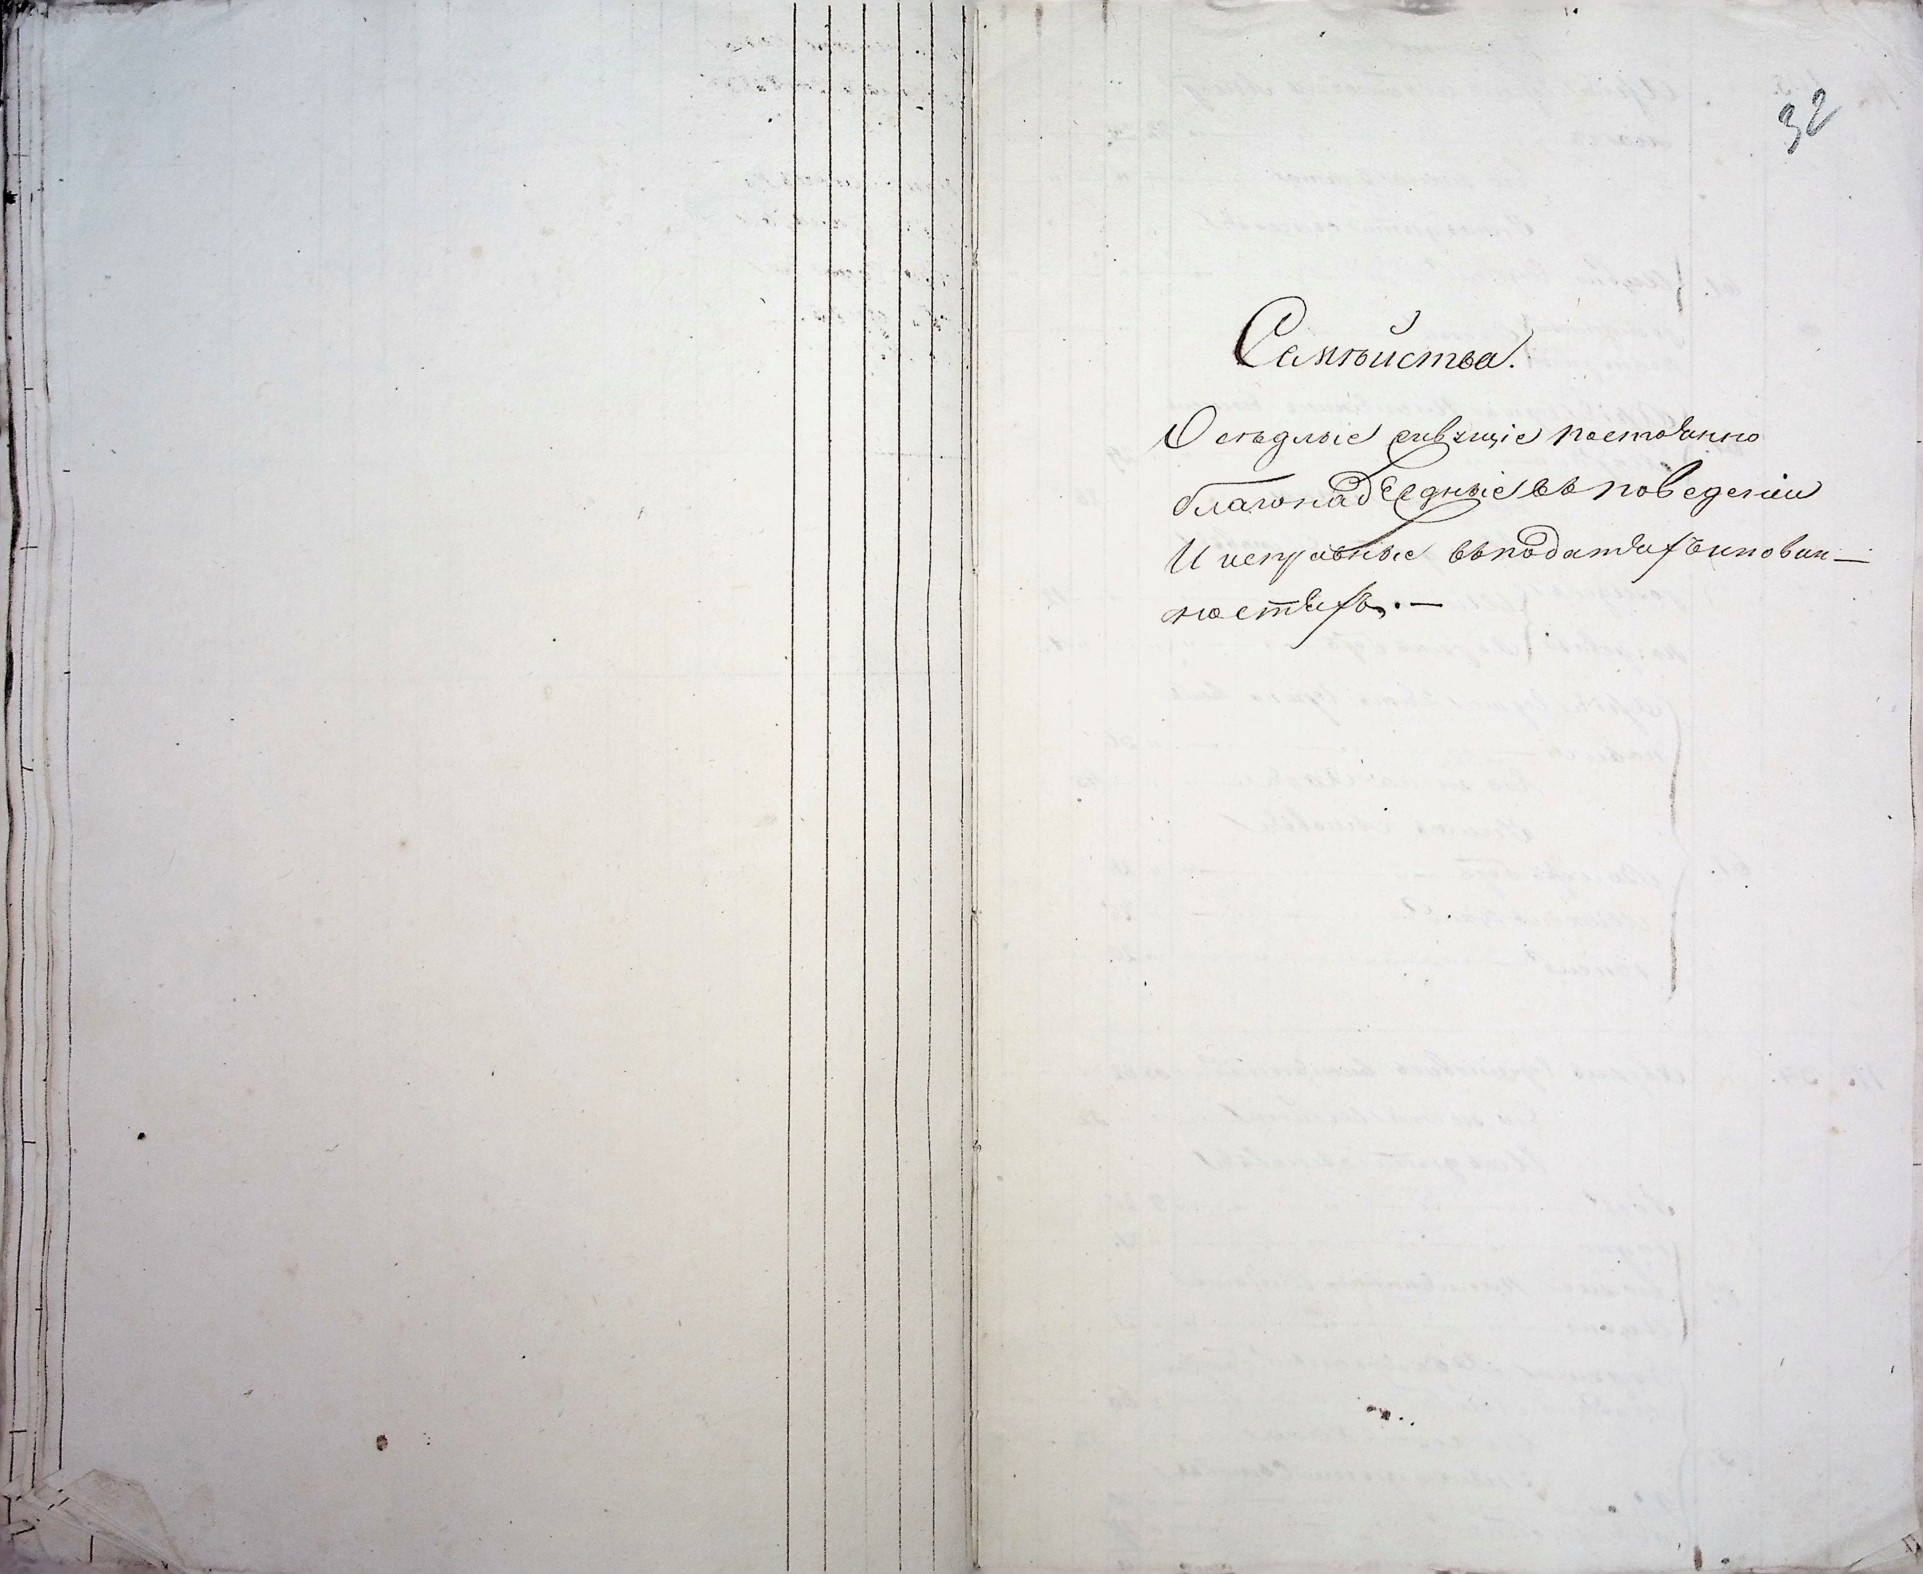 32
Семѣйства.
Осѣдлые живущіе постоянно
благонадежные въ поведеніи
И исправные въ податяхъ и повин—
ностяхъ. —